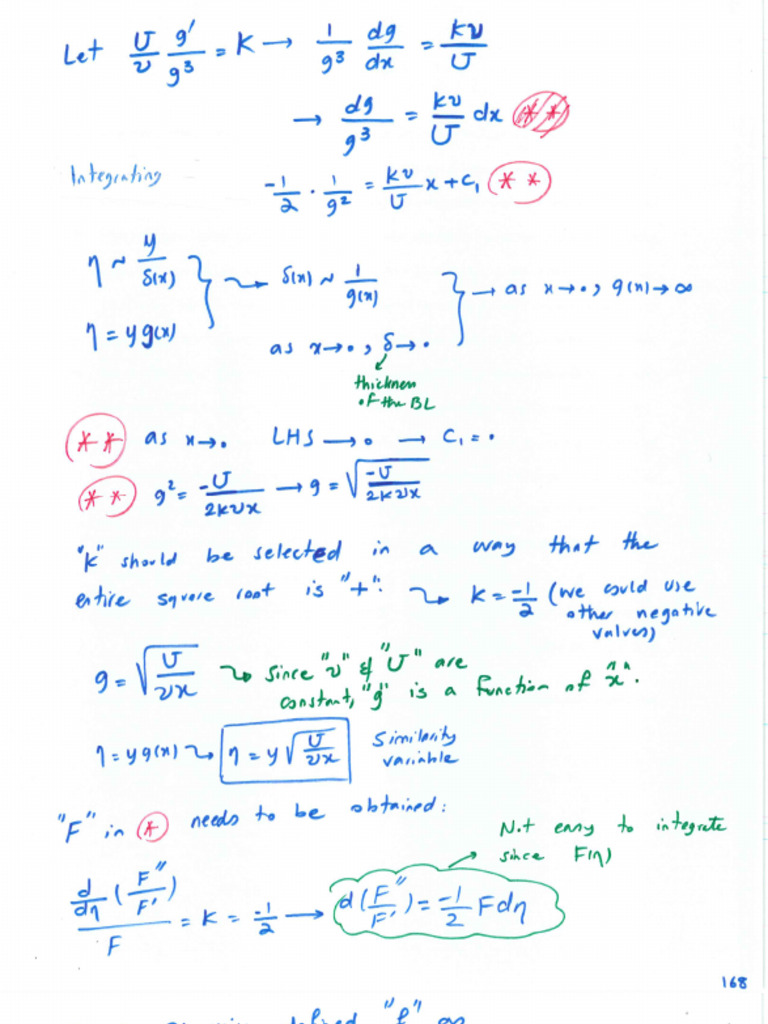 Let U/ν g'/g³ = K → 1/g³ dg/dx = kν/U
→ dg/g³ = kν/U dx (**)
Integrating -1/2 · 1/g² = kν/U x + C₁ (**)
η ~ y/δ(x)
η = y g(x)
δ(x) ~ 1/g(x)
as x → 0, δ → 0
→ as x → 0, g(x) → ∞
thickness
of the BL
(**) as x → 0 LHS → 0 → C₁ = 0
(**) g² = -U/2kνx → g = √(-U/2kνx)
"k" should be selected in a way that the
entire square root is "+". ⤳ K = -1/2 (we could use
other negative
values)
g = √(U/νx) ⤳ since "ν" & "U" are
constant, "g" is a function of "x".
η = y g(x) ⤳ η = y √(U/νx) Similarity
variable
"F" in (*) needs to be obtained:
Not easy to integrate
since F(η)
d/dη (F''/F') / F = K = -1/2 → d(F''/F') = -1/2 F dη
168
defined "f" as